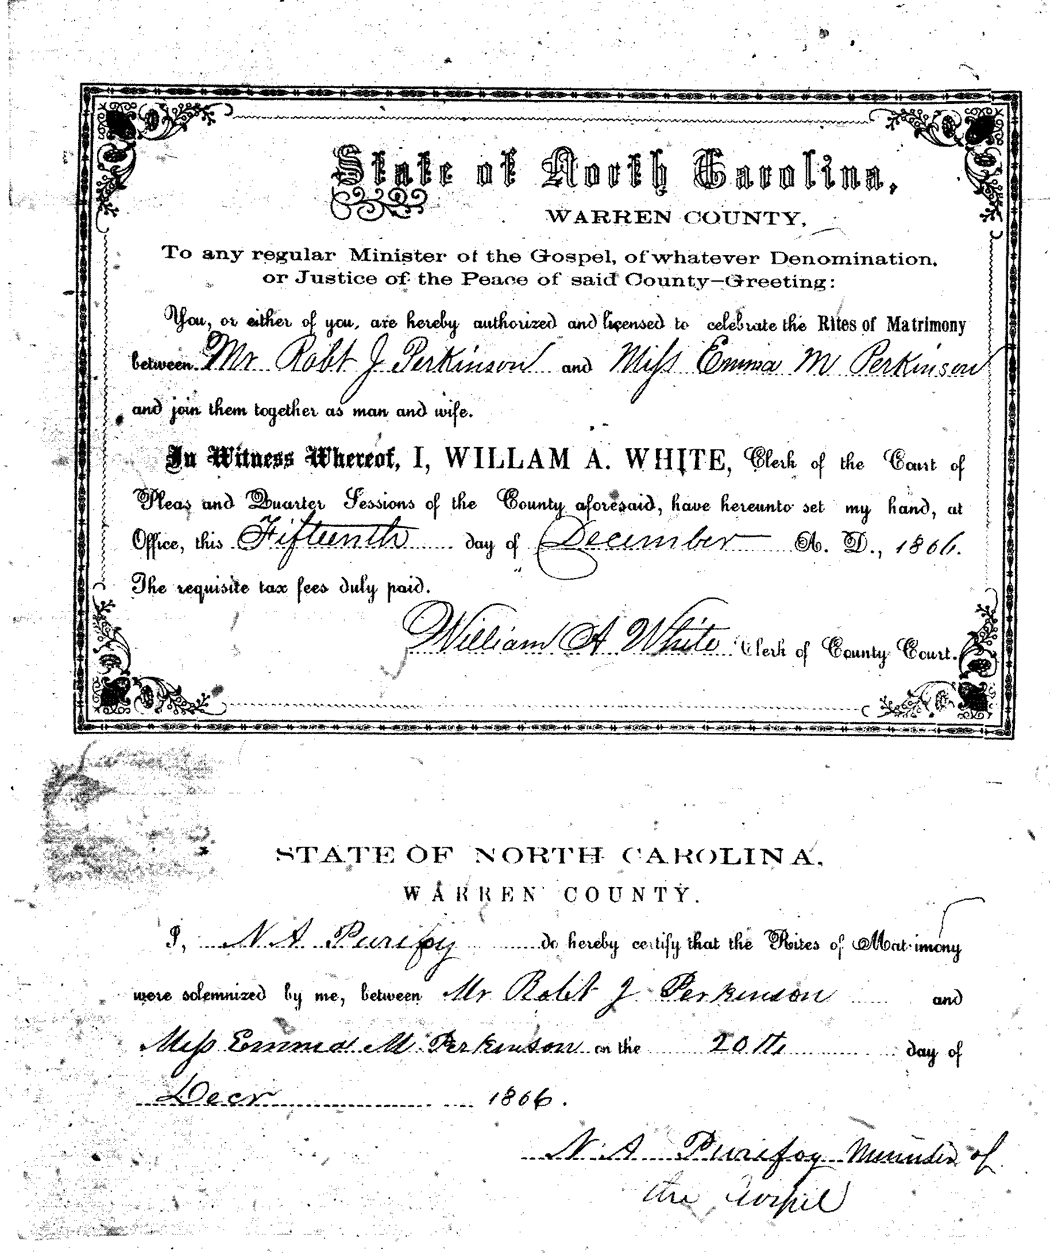 State of North Carolina,
WARREN COUNTY,
To any regular Minister of the Gospel, of whatever Denomination,
or Justice of the Peace of said County—Greeting:
You, or either of you, are hereby authorized and licensed to celebrate the Rites of Matrimony
between Mr Robt J Perkinson and Miss Emma M Perkinson
and join them together as man and wife.
In Witness Whereof, I, WILLAM A. WHITE, Clerk of the Court of
Pleas and Quarter Sessions of the County aforesaid, have hereunto set my hand, at
Office, this Fifteenth day of December A. D., 1866.
The requisite tax fees duly paid.
William A White Clerk of County Court.
STATE OF NORTH CAROLINA,
WARREN COUNTY.
I, N A Purifoy do hereby certify that the Rites of Matrimony
were solemnized by me, between Mr Robt J Perkinson and
Miss Emma M Perkinson on the 20th day of
Decr 1866.
N A Purifoy Minister of
the Gospel